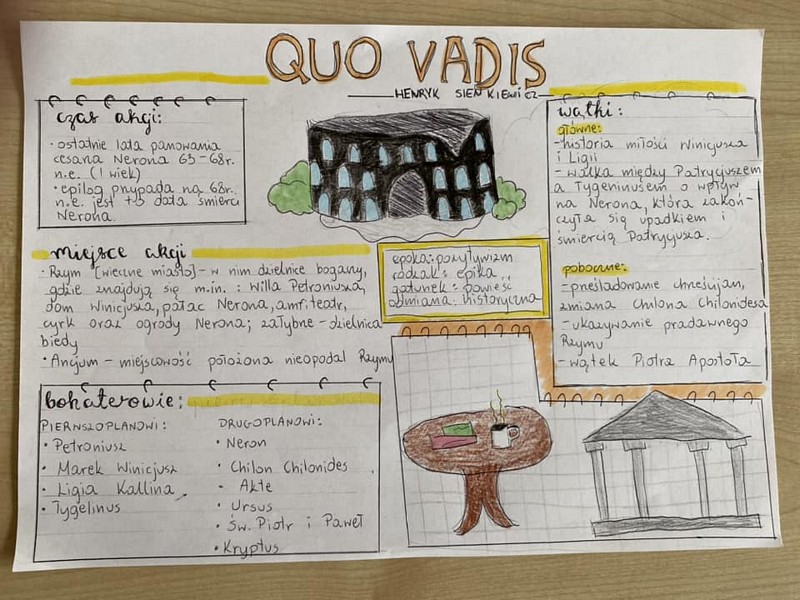 QUO VADIS
HENRYK SIENKIEWICZ
czas akcji:
• ostatnie lata panowania
cesarza Nerona 63-68r.
n.e. (I wiek)
• epilog przypada na 68r.
n.e. jest to data śmierci
Nerona.
miejsce akcji
• Rzym [wieczne miasto] - w nim dzielnice bogany,
gdzie znajdują się m.in.: Willa Petroniusza,
dom Winicjusza, pałac Nerona, amfiteatr,
cyrk oraz ogrody Nerona; zatybne - dzielnica
biedy
• Ancjum - miejscowość położona nieopodal Rzymu
bohaterowie:
PIERWSZOPLANOWI:
• Petroniusz
• Marek Winicjusz
• Ligia Kallina
• Tygelinus
DRUGOPLANOWI:
• Neron
• Chilon Chilonides
- Akte
• Ursus
• Św. Piotr i Paweł
• Kryptus
epoka: pozytywizm
rodzaj: epika
gatunek: powieść
odmiana: historyczna
wątki:
główne:
- historia miłości Winicjusza
i Ligii
- walka między Patrycjuszem
a Tygeninusem o wpływ
na Nerona, która zakoń-
czyła się upadkiem i
śmiercią Patrycjusza.
poboczne:
- prześladowanie chrześcijan,
zmiana Chilona Chilonidesa
- ukazywanie pradawnego
Rzymu
- wątek Piotra Apostoła